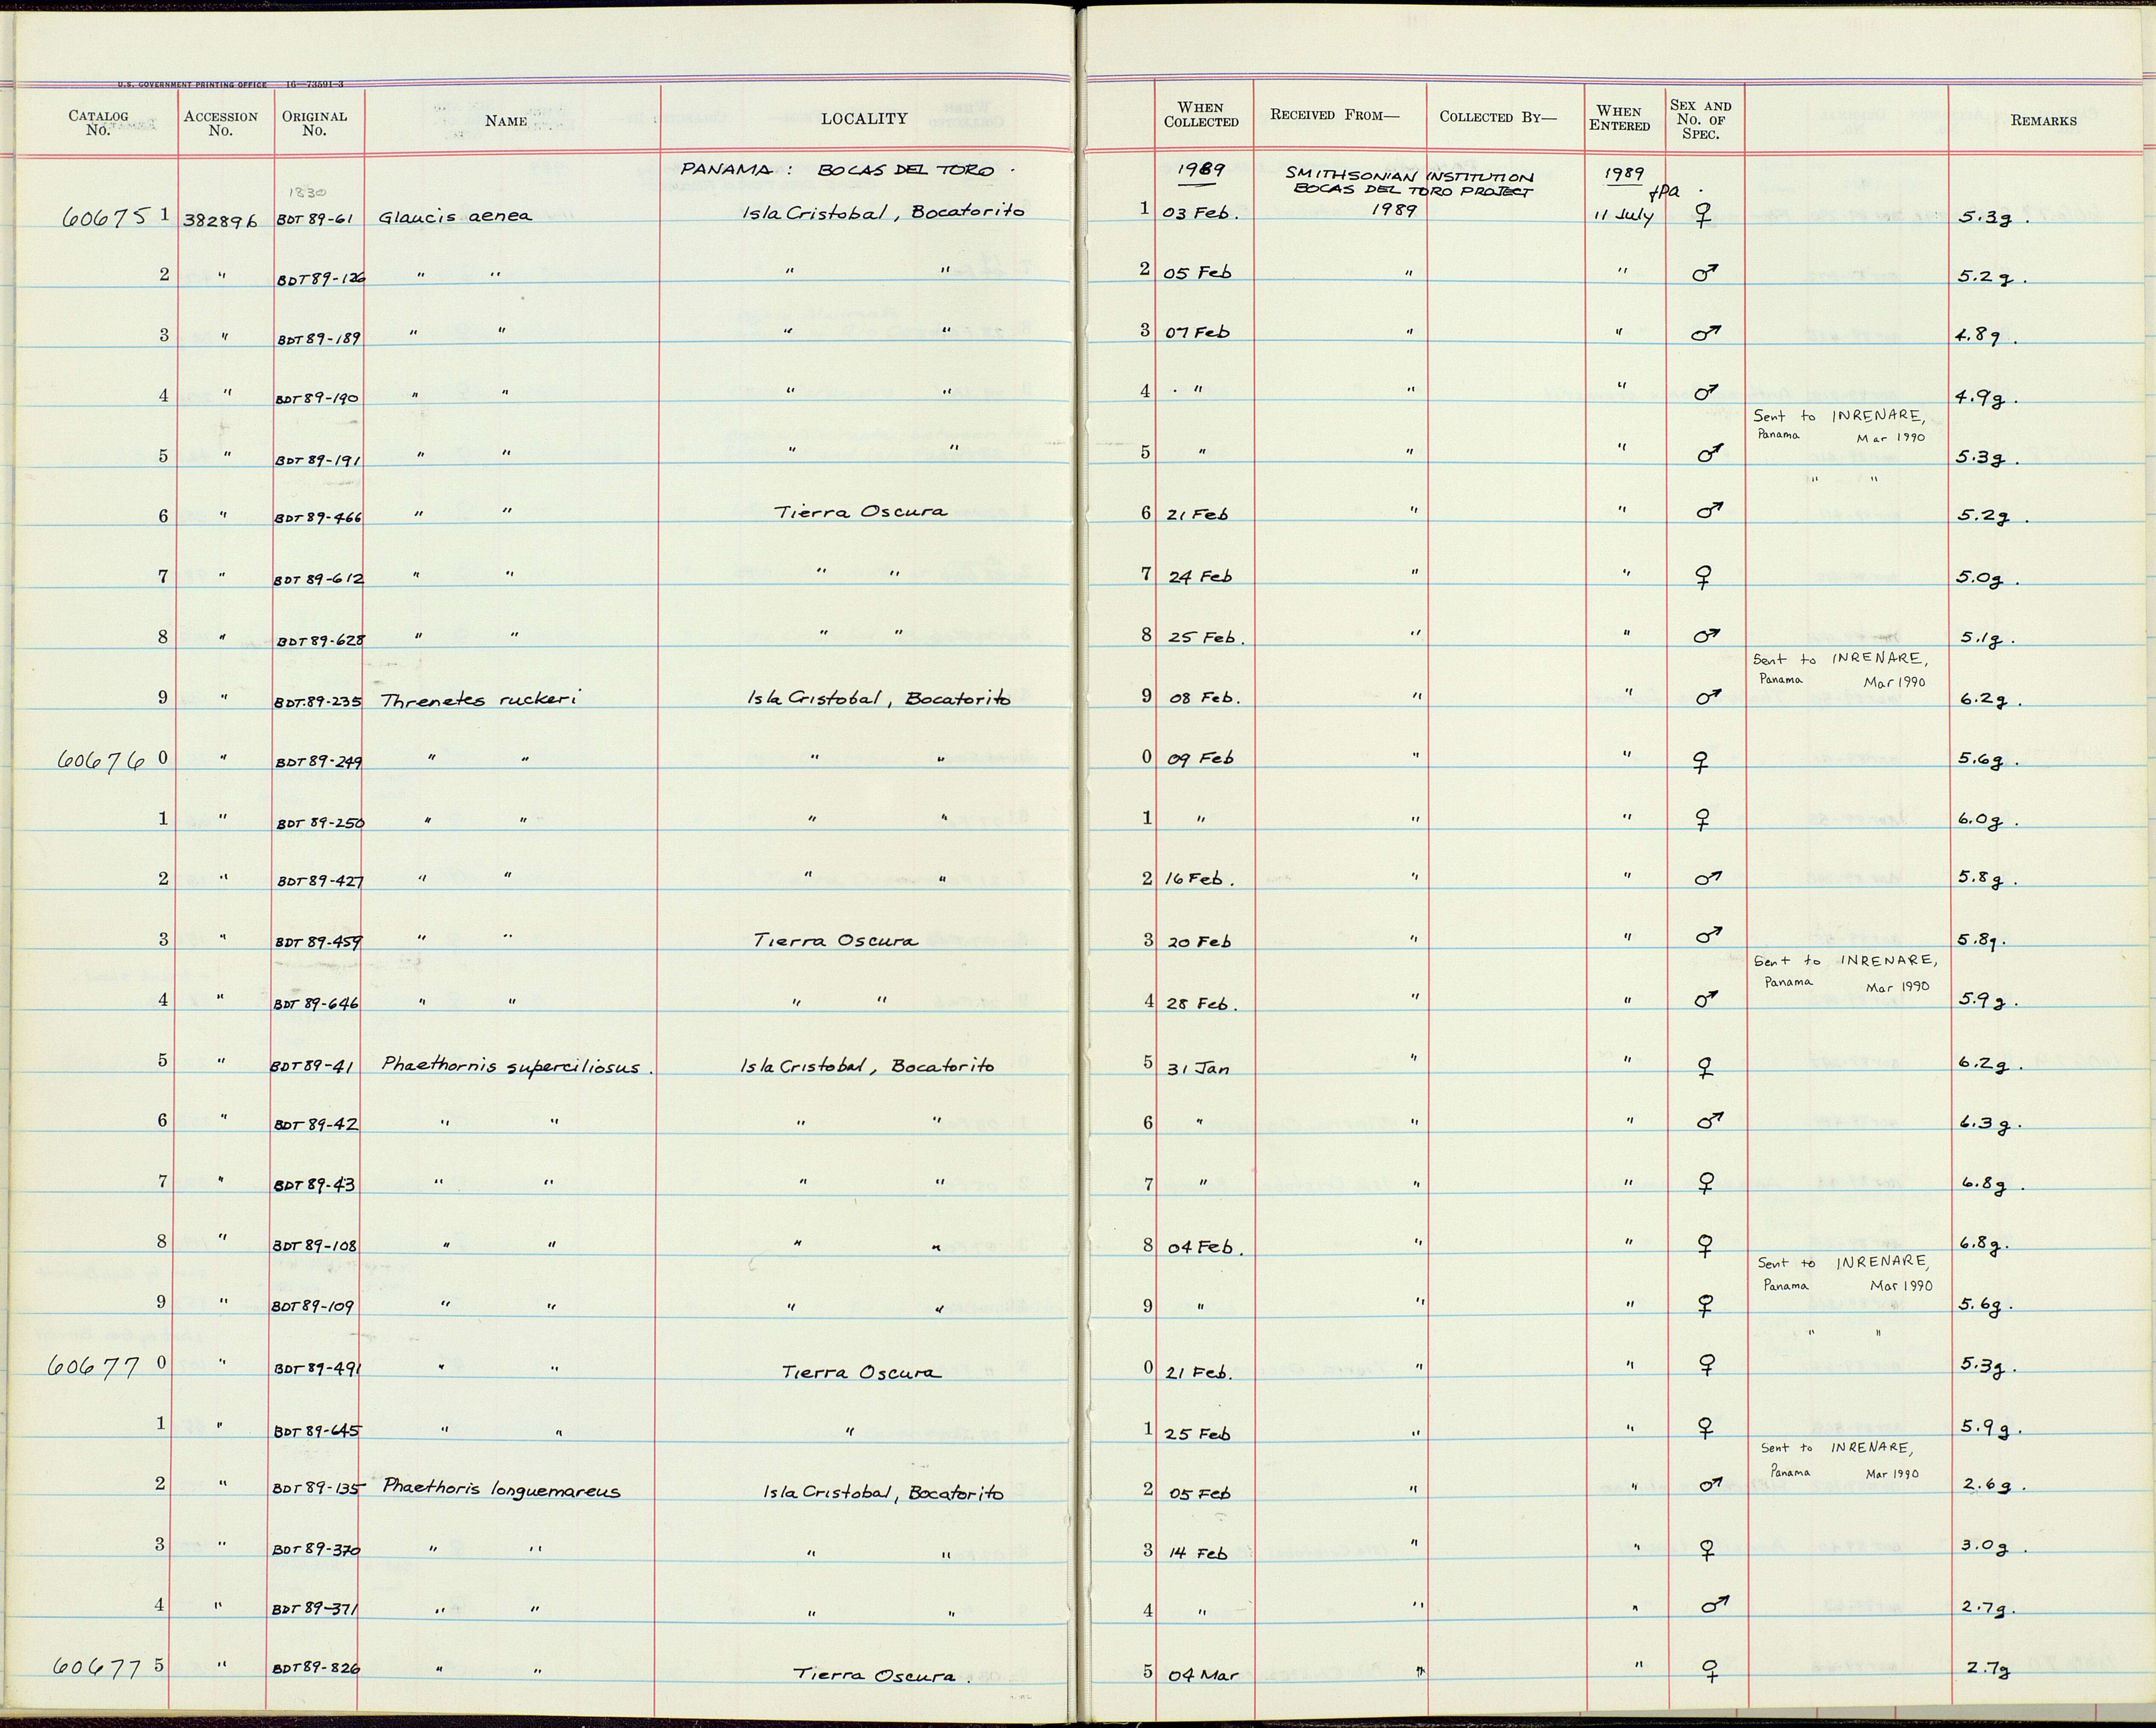 U.S. GOVERNMENT PRINTING OFFICE 16—73591-3
CATALOG No. ACCESSION No. ORIGINAL No. NAME LOCALITY WHEN COLLECTED RECEIVED FROM— COLLECTED BY— WHEN ENTERED SEX AND No. OF SPEC. REMARKS
PANAMA : BOCAS DEL TORO . 1989 SMITHSONIAN INSTITUTION 1989
1830 BOCAS DEL TORO PROJECT
606751 382896 BDT 89-61 Glaucis aenea Isla Cristobal, Bocatorito 1 03 Feb. 1989 11 July ♀ 5.3g.
2 " BDT 89-126 " " " " 2 05 Feb " " ♂ 5.2g.
3 " BDT 89-189 " " " " 3 07 Feb " " ♂ 4.8g.
4 " BDT 89-190 " " " " 4 " " " ♂ 4.9g.
Sent to INRENARE,
Panama Mar 1990
5 " BDT 89-191 " " " " 5 " " " ♂ 5.3g.
" "
6 " BDT 89-466 " " Tierra Oscura 6 21 Feb " " ♂ 5.2g.
7 " BDT 89-612 " " " " 7 24 Feb " " ♀ 5.0g.
8 " BDT 89-628 " " " " 8 25 Feb. " " ♂ 5.1g.
Sent to INRENARE,
Panama Mar 1990
9 " BDT 89-235 Threnetes ruckeri Isla Cristobal, Bocatorito 9 08 Feb. " " ♂ 6.2g.
606760 " BDT 89-249 " " " " 0 09 Feb " " ♀ 5.6g.
1 " BDT 89-250 " " " " 1 " " " ♀ 6.0g.
2 " BDT 89-427 " " " " 2 16 Feb. " " ♂ 5.8g.
3 " BDT 89-459 " " Tierra Oscura 3 20 Feb " " ♂ 5.8g.
Sent to INRENARE,
Panama Mar 1990
4 " BDT 89-646 " " " " 4 28 Feb. " " ♂ 5.9g.
5 " BDT 89-41 Phaethornis superciliosus. Isla Cristobal, Bocatorito 5 31 Jan " " ♀ 6.2g.
6 " BDT 89-42 " " " " 6 " " " ♂ 6.3g.
7 " BDT 89-43 " " " " 7 " " " ♀ 6.8g.
8 " BDT 89-108 " " " " 8 04 Feb. " " ♀ 6.8g.
Sent to INRENARE,
Panama Mar 1990
9 " BDT 89-109 " " " " 9 " " " ♀ 5.6g.
" "
606770 " BDT 89-491 " " Tierra Oscura 0 21 Feb. " " ♀ 5.3g.
1 " BDT 89-645 " " " 1 25 Feb " " ♀ 5.9g.
Sent to INRENARE,
Panama Mar 1990
2 " BDT 89-135 Phaethoris longuemareus Isla Cristobal, Bocatorito 2 05 Feb " " ♂ 2.6g.
3 " BDT 89-370 " " " " 3 14 Feb " " ♀ 3.0g.
4 " BDT 89-371 " " " " 4 " " " ♂ 2.7g.
606775 " BDT 89-826 " " Tierra Oscura. 5 04 Mar " " ♀ 2.7g